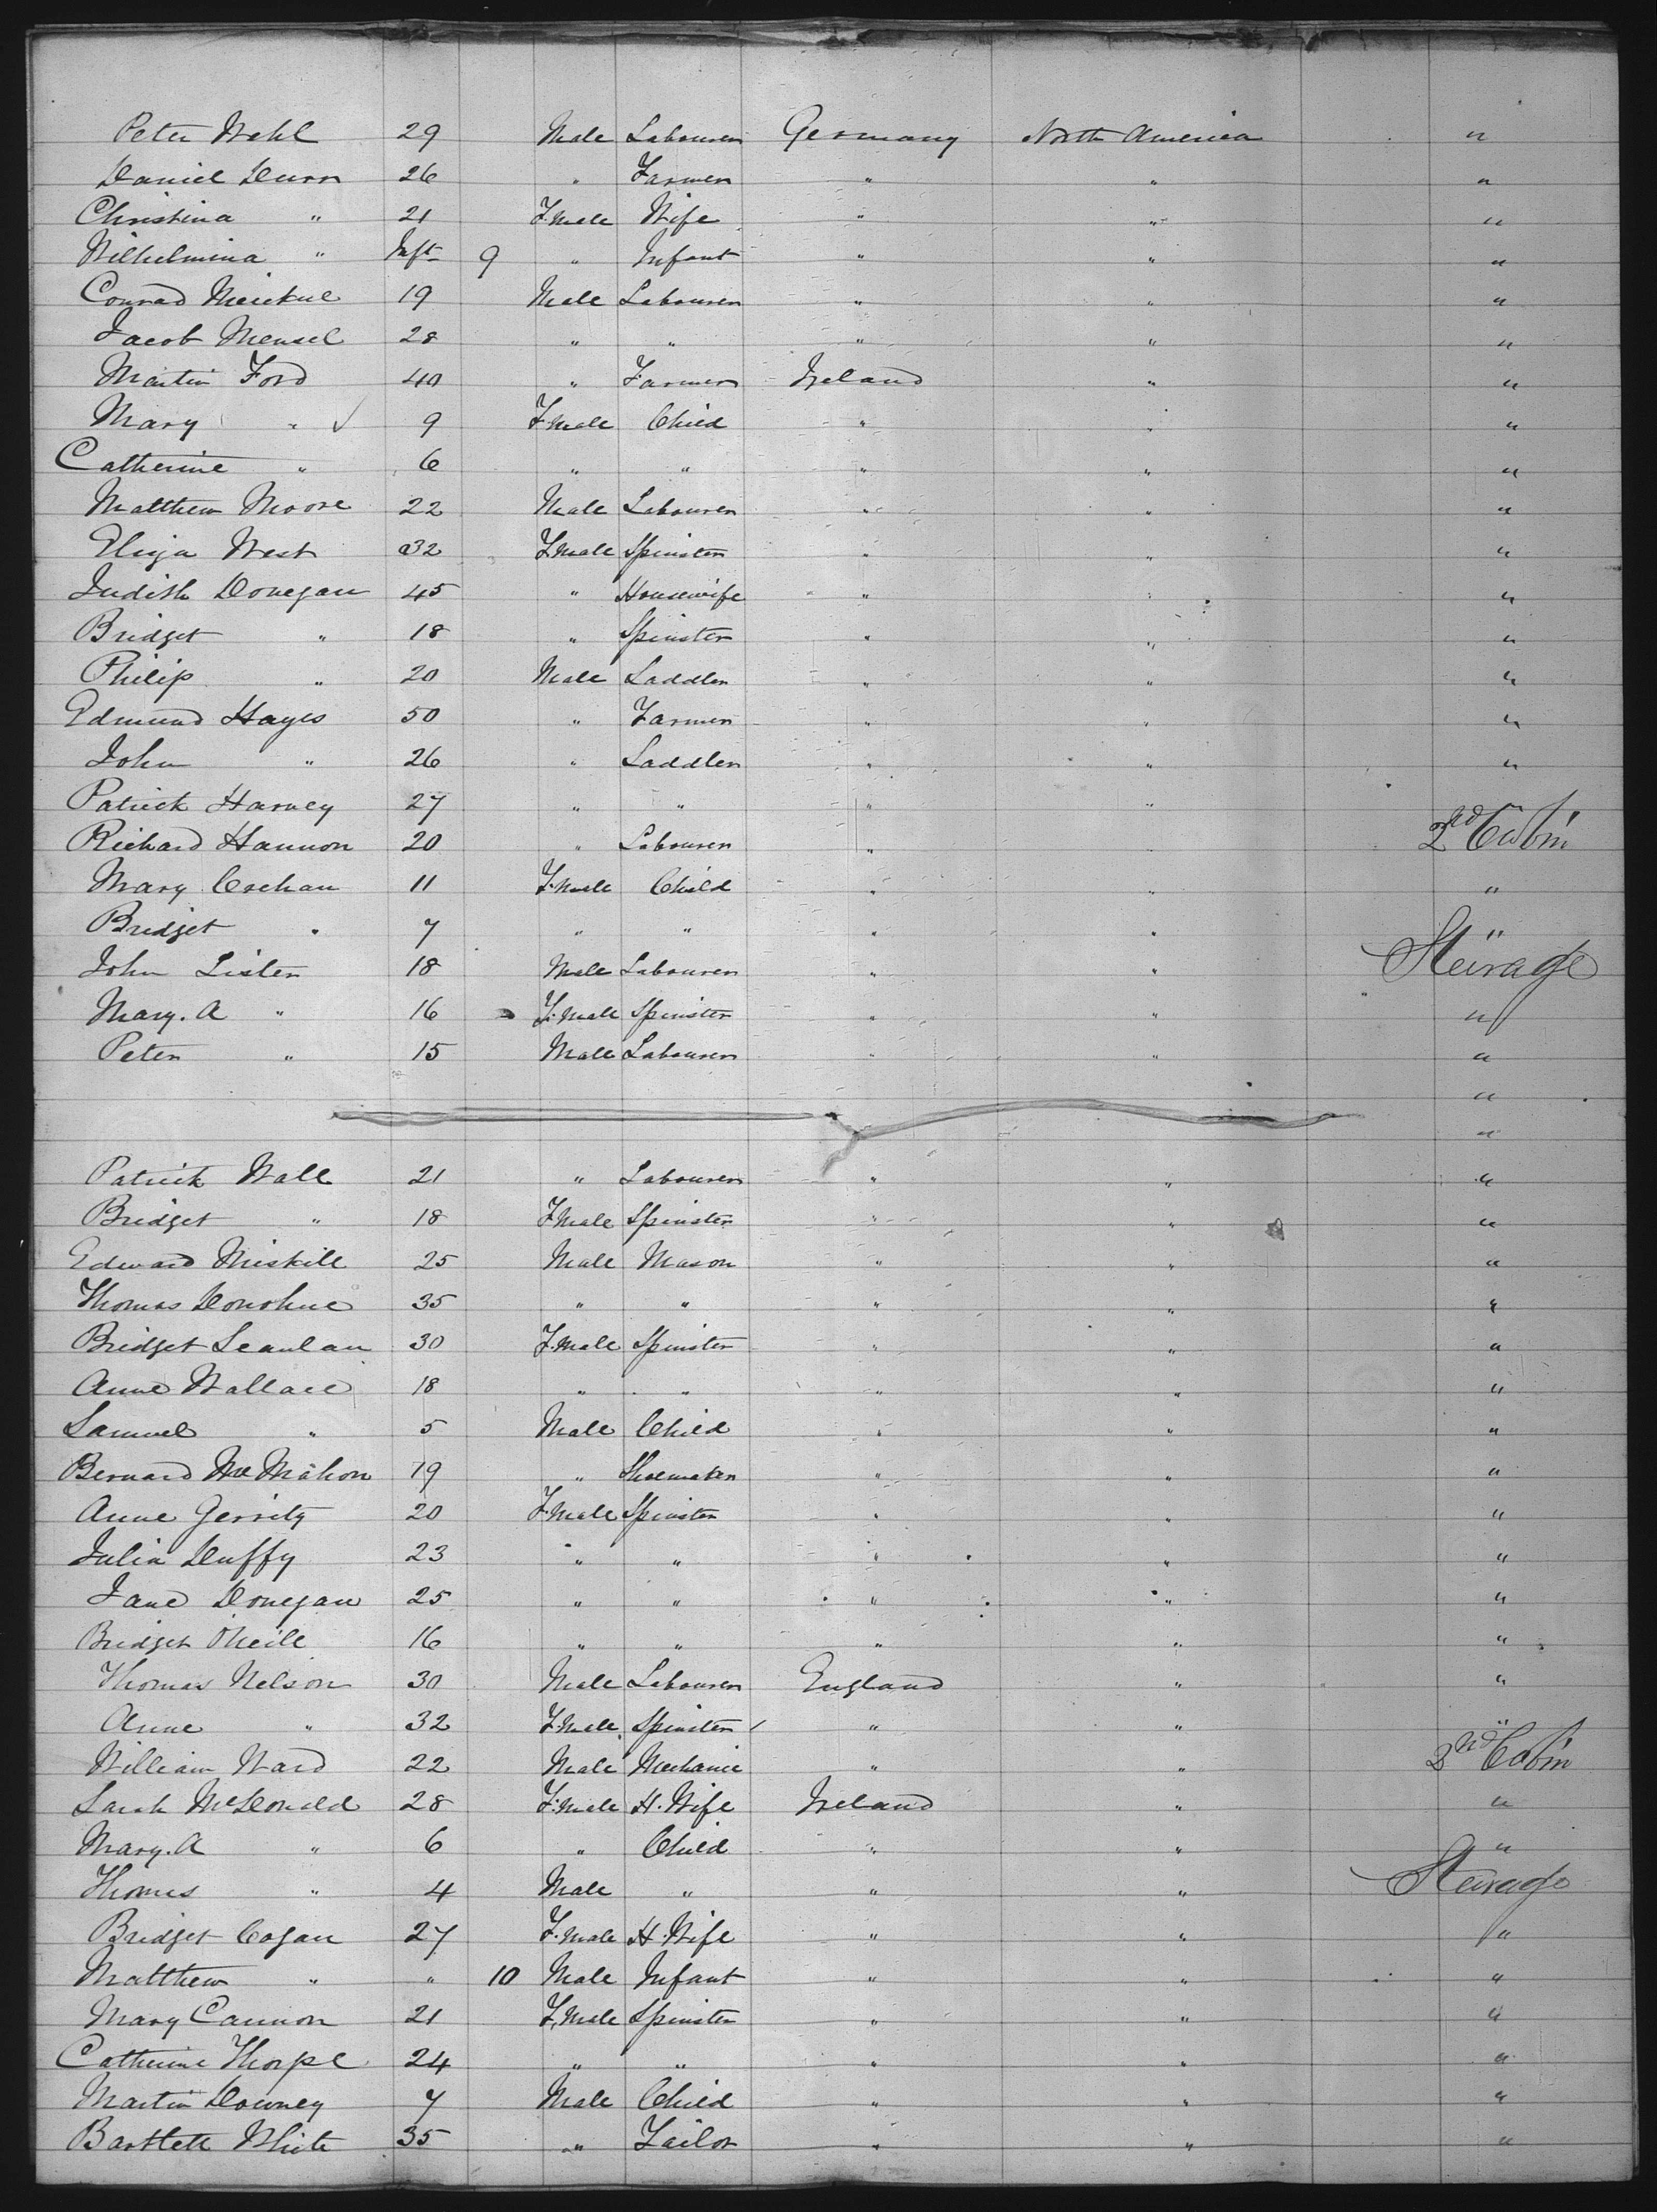 Peter Wehl 29 Male Labourer Germany North America "
Daniel Durr 26 " Farmer " " "
Christina " 21 F.male Wife " " "
Wilhelmina " Inft 9 " Infant " " "
Conrad 19 Male Labourer " " "
Jacob Mensel 28 " " " " "
Martin Ford 40 " Farmer Ireland " "
Mary " ✓ 9 F.male Child " " "
Catherine " 6 " " " " "
Matthew Moore 22 Male Labourer " " "
Eliza West 32 F.male Spinster " " "
Judith Donegan 45 " Housewife " " "
Bridget " 18 " Spinster " " "
Philip " 20 Male Saddler " " "
Edmund Hayes 50 " Farmer " " "
John " 26 " Saddler " " "
Patrick Harvey 27 " " " " "
Richard Hannon 20 " Labourer " " 2nd Cabin
Mary Crehan 11 F.male Child " " "
Bridget " 7 " " " " "
John Lister 18 Male Labourer " " Steirage
Mary. A " 16 F.male Spinster " " "
Peter " 15 Male Labourer " " "
"
"
Patrick Wall 21 " Labourer " " "
Bridget " 18 F.male Spinster " " "
Edward Miskill 25 Male Mason " " "
Thomas Donohue 35 " " " " "
Bridget Scanlan 30 F.male Spinster " " "
Anne Wallace 18 " " " " "
Samuel " 5 Male Child " " "
Bernard McMahon 19 " Shoemaker " " "
Anne Gerrity 20 F.male Spinster " " "
Julia Duffy 23 " " " " "
Jane Donegan 25 " " " " "
Bridget O'Neile 16 " " " " "
Thomas Nelson 30 Male Labourer England " "
Anne " 32 F.male Spinster " " "
William Ward 22 Male Mechanic " " 2nd Cabin
Sarah McDonald 28 F.male H. Wife Ireland " "
Mary. A " 6 " Child " " "
Thomas " 4 Male " " " Steirage
Bridget Cogan 27 F.male H. Wife " " "
Matthew " " 10 Male Infant " " "
Mary Cannon 21 F.male Spinster " " "
Catherine Thorpe 24 " " " " "
Martin Downey 7 Male Child " " "
Bartlett White 35 " Tailor " " "